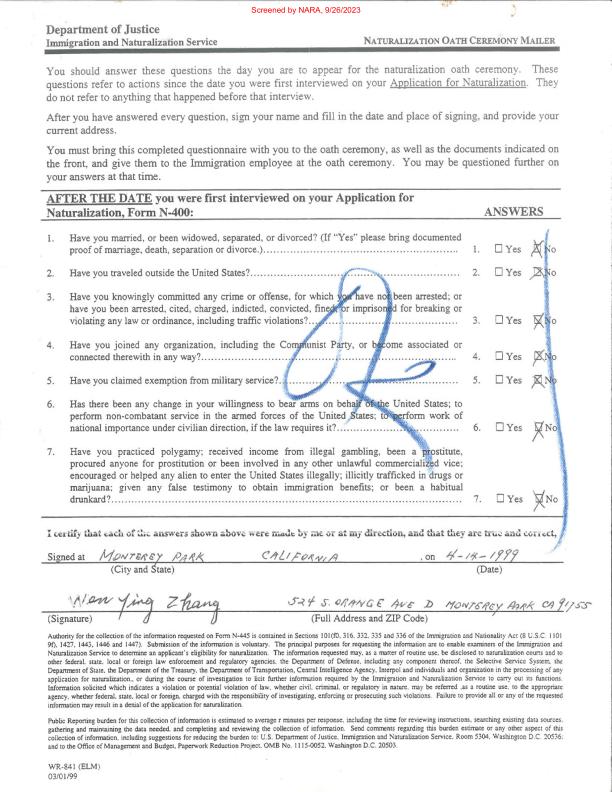 Screened by NARA, 9/26/2023
Department of Justice
Immigration and Naturalization Service
NATURALIZATION OATH CEREMONY MAILER
You should answer these questions the day you are to appear for the naturalization oath ceremony. These
questions refer to actions since the date you were first interviewed on your Application for Naturalization. They
do not refer to anything that happened before that interview.
After you have answered every question, sign your name and fill in the date and place of signing, and provide your
current address.
You must bring this completed questionnaire with you to the oath ceremony, as well as the documents indicated on
the front, and give them to the Immigration employee at the oath ceremony. You may be questioned further on
your answers at that time.
AFTER THE DATE you were first interviewed on your Application for
Naturalization, Form N-400:
ANSWERS
1. Have you married, or been widowed, separated, or divorced? (If "Yes" please bring documented
proof of marriage, death, separation or divorce.) 1. Yes No
2. Have you traveled outside the United States? 2. Yes No
3. Have you knowingly committed any crime or offense, for which you have not been arrested; or
have you been arrested, cited, charged, indicted, convicted, fined or imprisoned for breaking or
violating any law or ordinance, including traffic violations? 3. Yes No
4. Have you joined any organization, including the Communist Party, or become associated or
connected therewith in any way? 4. Yes No
5. Have you claimed exemption from military service? 5. Yes No
6. Has there been any change in your willingness to bear arms on behalf of the United States; to
perform non-combatant service in the armed forces of the United States; to perform work of
national importance under civilian direction, if the law requires it? 6. Yes No
7. Have you practiced polygamy; received income from illegal gambling, been a prostitute,
procured anyone for prostitution or been involved in any other unlawful commercialized vice;
encouraged or helped any alien to enter the United States illegally; illicitly trafficked in drugs or
marijuana; given any false testimony to obtain immigration benefits; or been a habitual
drunkard? 7. Yes No
I certify that each of the answers shown above were made by me or at my direction, and that they are true and correct,
Signed at MONTEREY PARK CALIFORNIA , on 4-14-1999
(City and State) (Date)
Wen Ying Zhang 524 S. ORANGE AVE D MONTEREY PARK CA 91755
(Signature) (Full Address and ZIP Code)
Authority for the collection of the information requested on Form N-445 is contained in Sections 101(f), 316, 332, 335 and 336 of the Immigration and Nationality Act (8 U.S.C. 1101
9f), 1427, 1443, 1446 and 1447). Submission of the information is voluntary. The principal purposes for requesting the information are to enable examiners of the Immigration and
Naturalization Service to determine an applicant's eligibility for naturalization. The information requested may, as a matter of routine use, be disclosed to naturalization courts and to
other federal, state, local or foreign law enforcement and regulatory agencies, the Department of Defense, including any component thereof, the Selective Service System, the
Department of State, the Department of the Treasury, the Department of Transportation, Central Intelligence Agency, Interpol and individuals and organization in the processing of any
application for naturalization., or during the course of investigation to licit further information required by the Immigration and Naturalization Service to carry out its functions.
Information solicited which indicates a violation or potential violation of law, whether civil, criminal, or regulatory in nature, may be referred ,as a routine use, to the appropriate
agency, whether federal, state, local or foreign, charged with the responsibility of investigating, enforcing or prosecuting such violations. Failure to provide all or any of the requested
information may result in a denial of the application for naturalization.
Public Reporting burden for this collection of information is estimated to average r minutes per response, including the time for reviewing instructions, searching existing data sources,
gathering and maintaining the data needed, and completing and reviewing the collection of information. Send comments regarding this burden estimate or any other aspect of this
collection of information, including suggestions for reducing the burden to: U.S. Department of Justice. Immigration and Naturalization Service. Room 5304, Washington D.C. 20536;
and to the Office of Management and Budget, Paperwork Reduction Project. OMB No. 1115-0052. Washington D.C. 20503.
WR-841 (ELM)
03/01/99